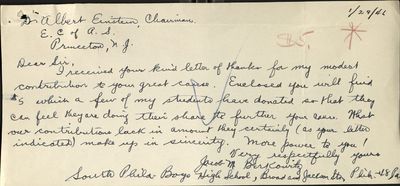 Dr Albert Einstein Chairman 1/29/46
E. C. of A. S.
Princeton, N. J.
$5.
Dear Sir,
I received your kind letter of thanks for my modest
contribution to your great cause. Enclosed you will find
$5 which a few of my students have donated so that they
can feel they are doing their share to further your cause. What
our contributions lack in amount they certainly (as your letter
indicated) make up in sincerity. More power to you!
Very respectfully yours
Jacob M. Berkowitz
South Phila Boys High School, Broad and Jackson Sts, Phila 48 Pa